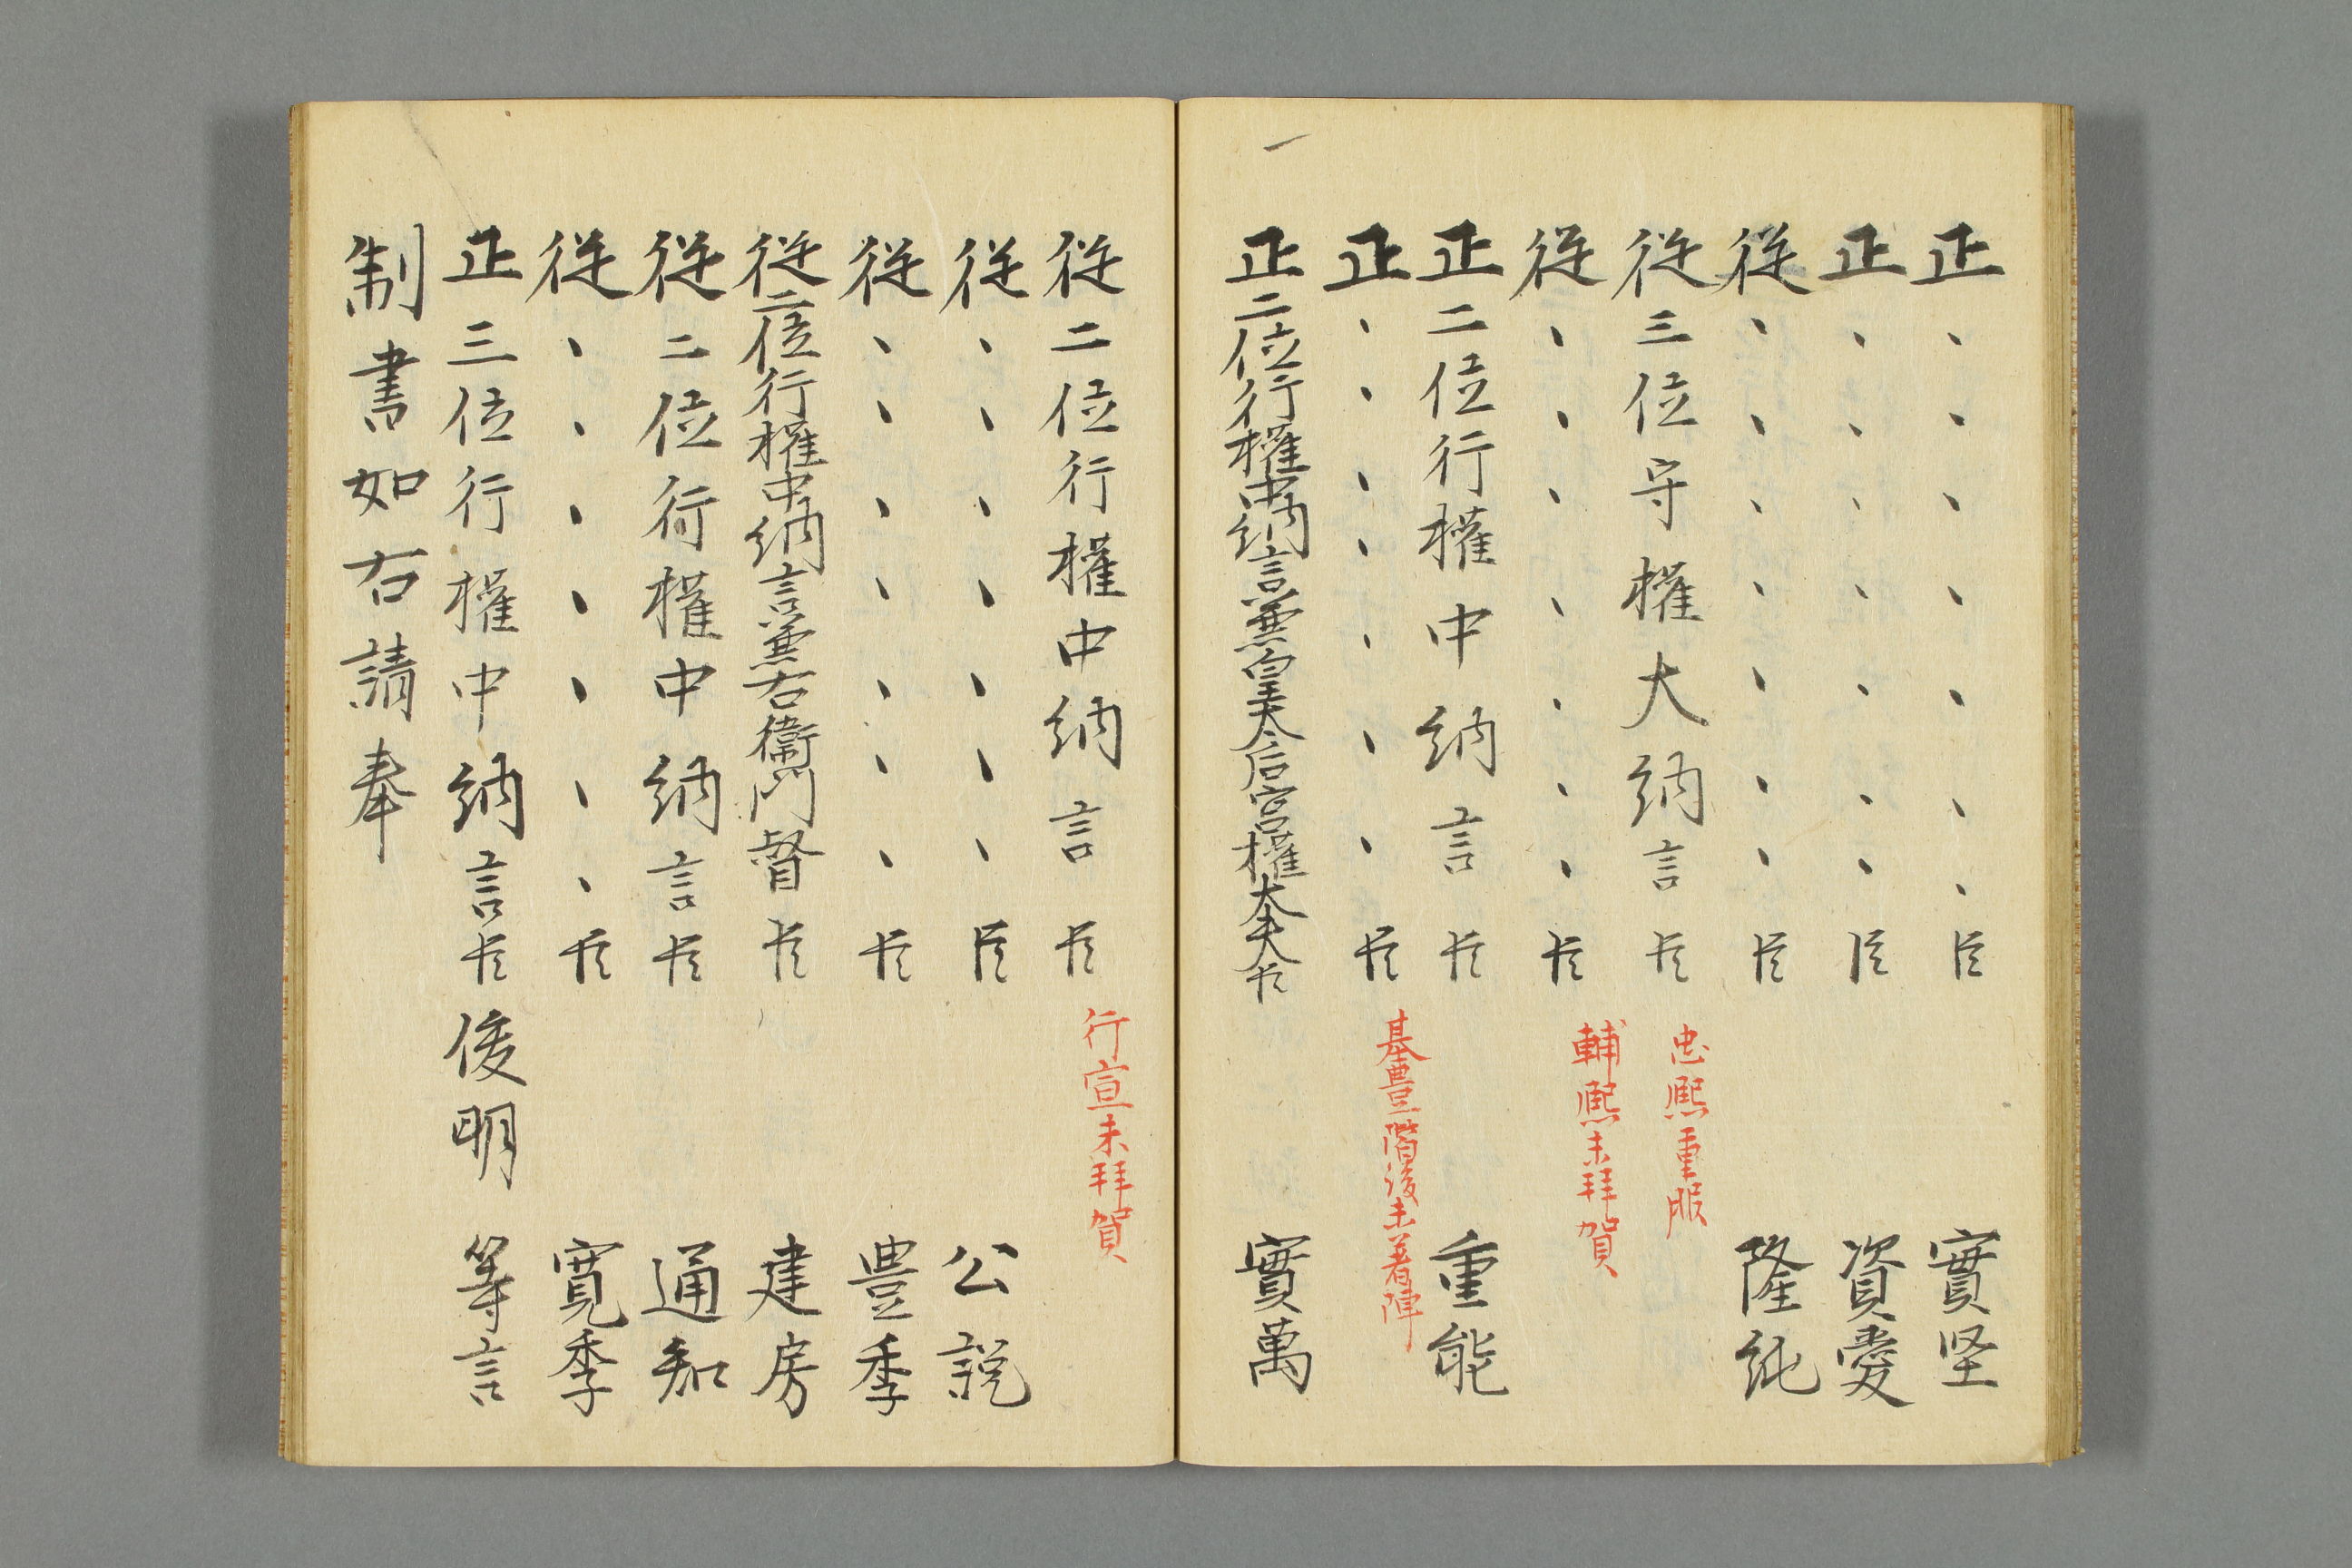 正、、、、、、、臣 實堅
正、、、、、、、臣 資愛
従、、、、、、、臣 隆純
従三位守權大納言臣 忠熈重服
従、、、、、、、臣 輔熈未拜賀
正二位行權中納言臣 重能
正、、、、、、、臣 基豊二階後未着陣
正二位行權中納言兼皇太后宮權大夫臣 實萬
従二位行權中納言臣 行宣未拜賀
従、、、、、、、臣 公説
従、、、、、、、臣 豊季
従二位行權中納言兼右衛門督臣 建房
従二位行權中納言臣 通知
従、、、、、、、臣 寛季
正三位行權中納言臣俊明 等言
制書如右請奉